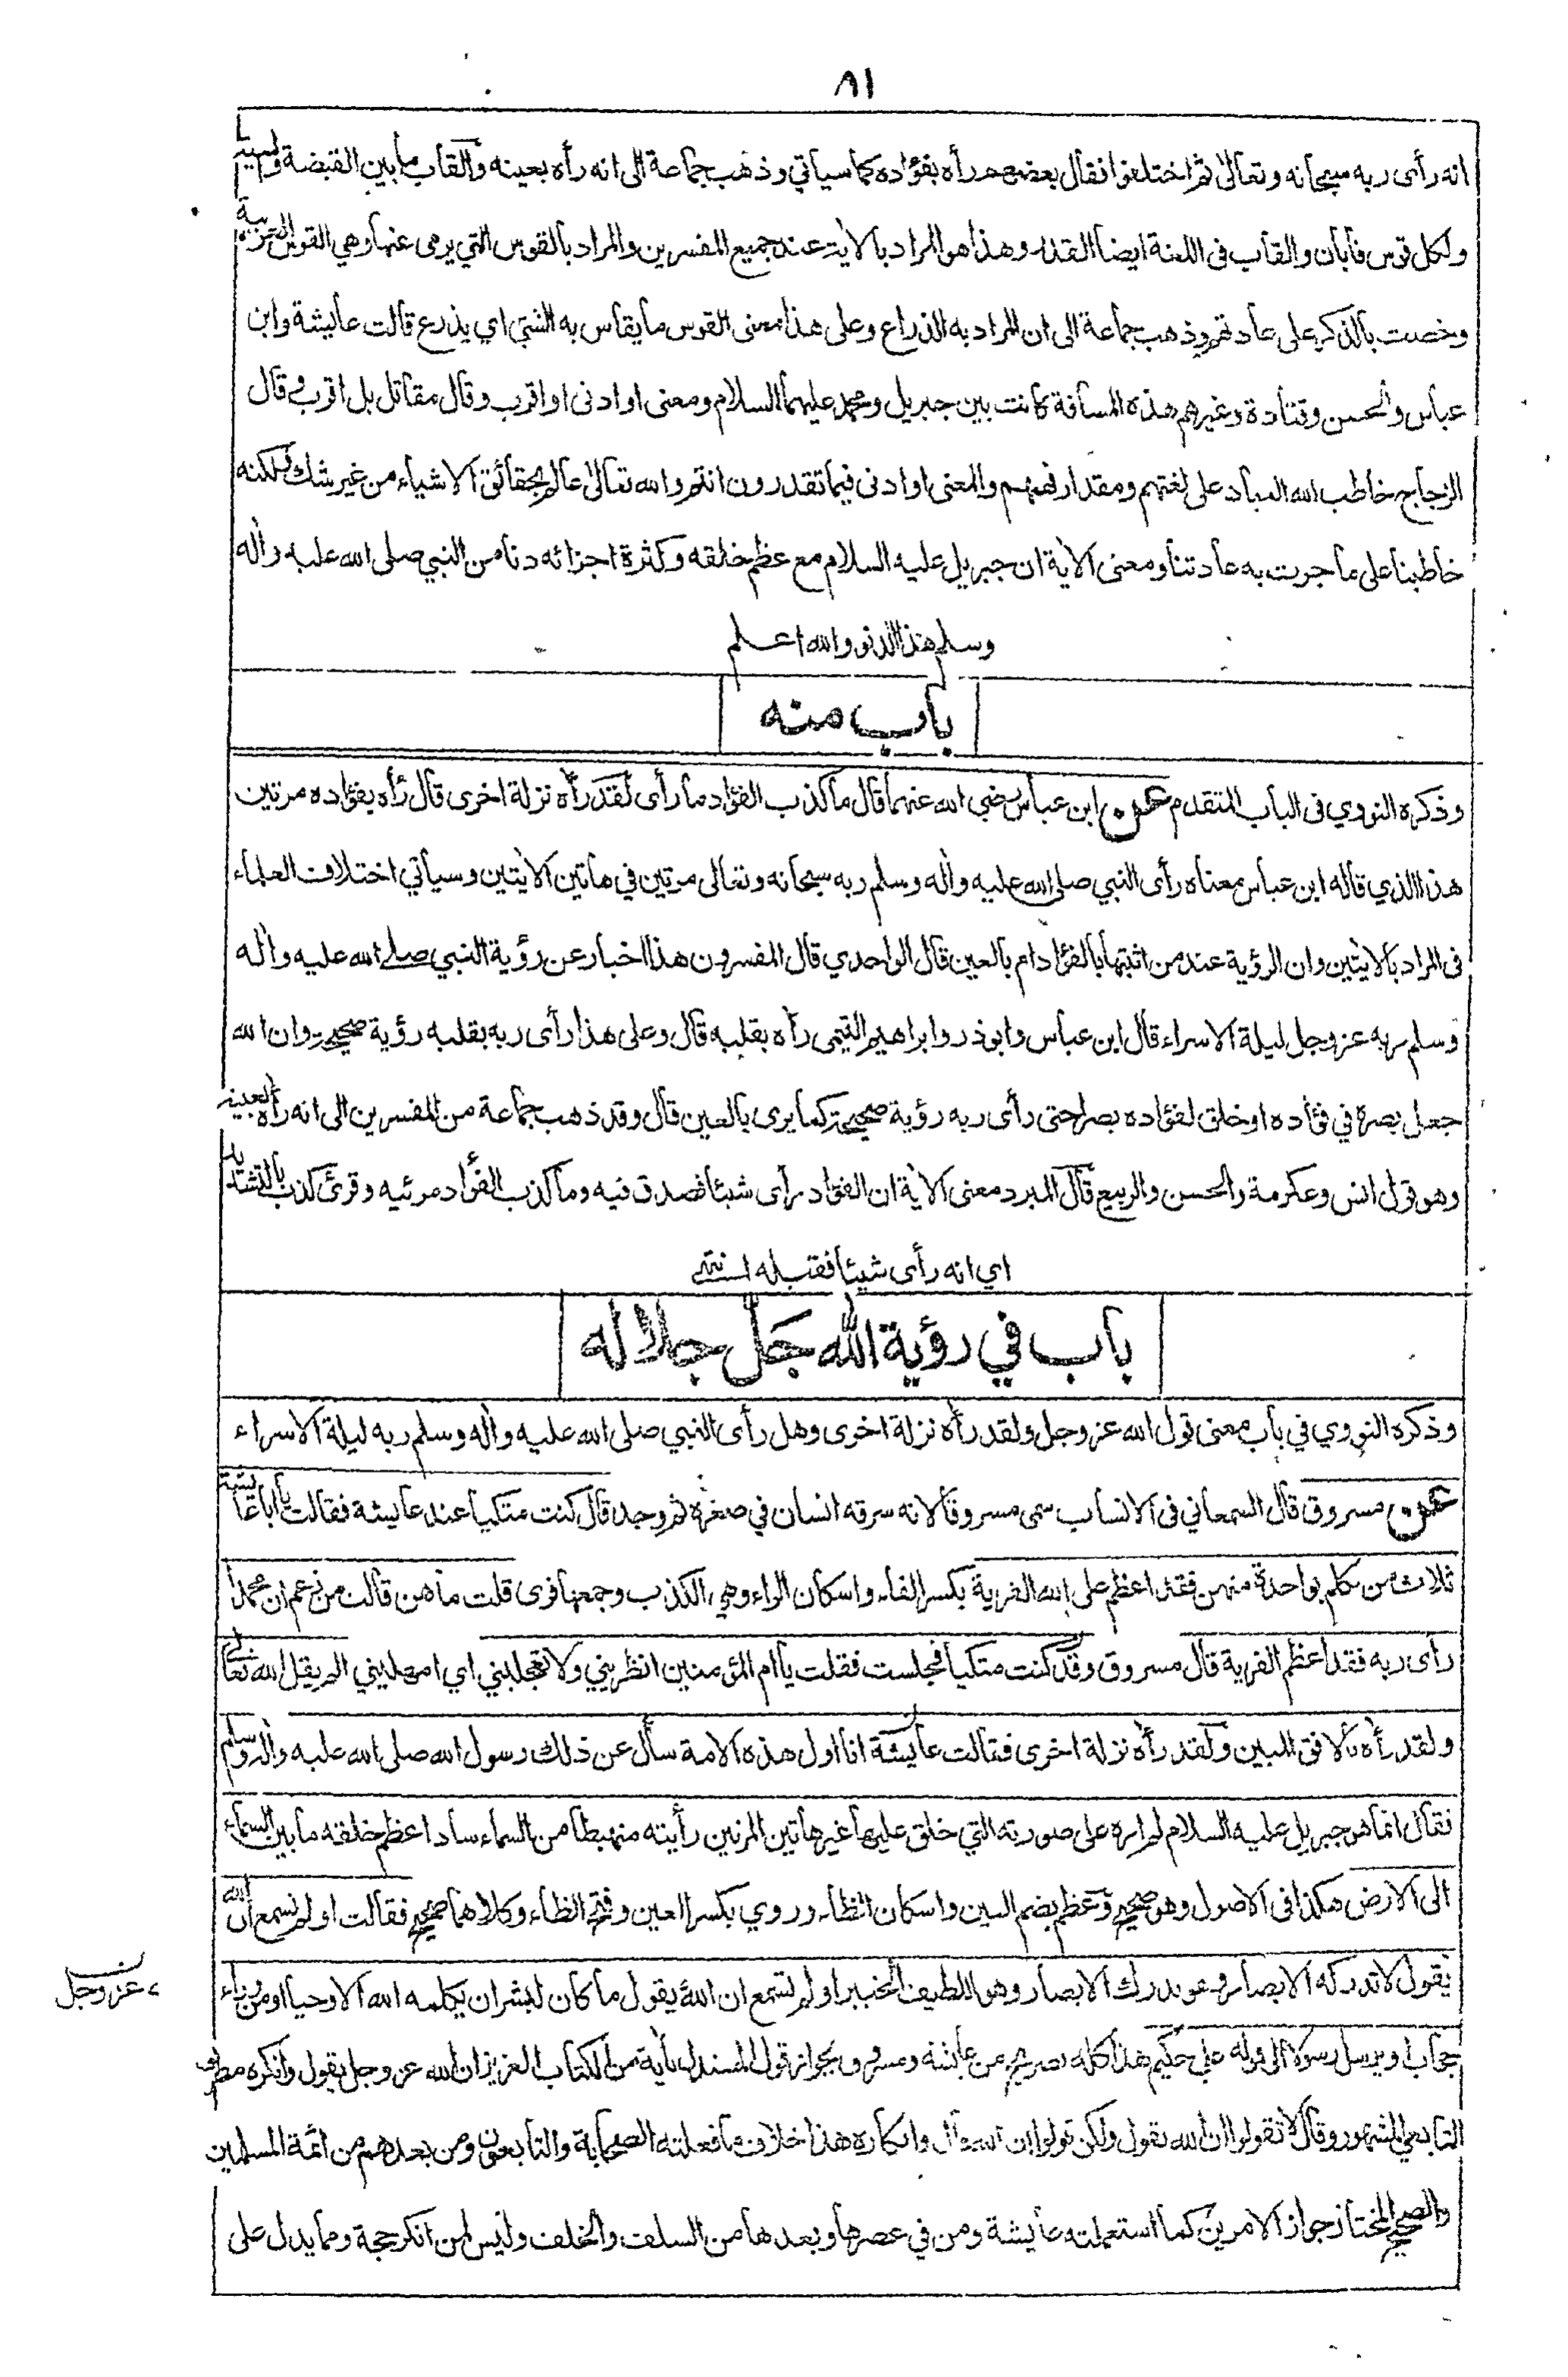 ٨١
انه رأى ربه سبحانه وتعالى ثم اختلفوا فقال بعضهم رأه بفؤاده كما سياتي وذهب جماعة الى انه رأه بعينه والقاب ما بين القبضة والسية
ولكل قوس قابان والقاب فى اللغة ايضا القدر وهذا هو المراد بالاية عند جميع المفسرين والمراد بالقوس التي يرمى عنها وهي القوس العربية
وخصت بالذكر على عادتهم وذهب جماعة الى ان المراد به الذراع وعلى هذا معنى القوس ما يقاس به الشيئ اي يذرع قالت عايشة وابن
عباس والحسن وقتادة وغيرهم هذه المسافة كانت بين جبريل ومحمد عليهما السلام ومعنى او ادنى او اقرب وقال مقاتل بل اقرب وقال
الزجاج خاطب الله العباد على لغتهم ومقدار فهمهم والمعنى او ادنى فيما تقدرون انتم والله تعالى عالم بحقائق الاشياء من غير شك ولكنه
خاطبنا على ما جرت به عادتنا ومعنى الاية ان جبريل عليه السلام مع عظم خلقه وكثرة اجزائه دنا من النبي صلى الله عليه واله
وسلم هذا الدنو والله اعلم
باب منه
وذكره النووي فى الباب المتقدم عن ابن عباس رضي الله عنهما قال ما كذب الفؤاد ما رأى لقد رأه نزلة اخرى قال رأه بفؤاده مرتين
هذا الذي قاله ابن عباس معناه رأى النبي صلى الله عليه واله وسلم ربه سبحانه وتعالى مرتين في هاتين الايتين وسيأتي اختلاف العلماء
فى المراد بالايتين وان الرؤية عند من اثبتها بالفؤاد ام بالعين قال الواحدي قال المفسرون هذا اخبار عن رؤية النبي صلى الله عليه واله
وسلم ربه عز وجل ليلة الاسراء قال ابن عباس وابو ذر وابراهيم التيمى رأه بقلبه قال وعلى هذا رأى ربه بقلبه رؤية صحيحة وان الله
جعل بصره في فؤاده او خلق لفؤاده بصرا حتى رأى ربه رؤية صحيحة كما يرى بالعين قال وقد ذهب جماعة من المفسرين الى انه رأه بعينه
وهو قول انس وعكرمة والحسن والربيع قال المبرد معنى الاية ان الفؤاد رأى شيئا فصدق فيه وما كذب الفؤاد مرئيه وقرئ كذب بالتشديد
اي انه رأى شيئا فقبله انتهى
باب في رؤية الله جَلَّ جلاله
وذكره النووي في باب معنى قول الله عز وجل ولقد رأه نزلة اخرى وهل رأى النبي صلى الله عليه واله وسلم ربه ليلة الاسراء
عن مسروق قال السمعاني فى الانساب سمى مسروقا لانه سرقه انسان في صغره ثم وجد قال كنت متكيا عند عايشة فقالت يا ابا عايشة
ثلاث من تكلم بواحدة منهن فقد اعظم على الله الفرية بكسر الفاء واسكان الراء وهي الكذب وجمعها فرى قلت ما هن قالت من زعم ان محمدا
رأى ربه فقد اعظم الفرية قال مسروق وقد كنت متكيا فجلست فقلت يا ام المؤمنين انظريني ولا تعجليني اي امهليني الم يقل الله تعالى
ولقد رأه بالافق المبين ولقد رأه نزلة اخرى فقالت عايشة انا اول هذه الامة سأل عن ذلك رسول الله صلى الله عليه واله وسلم
فقال انما هو جبريل عليه السلام لم اره على صورته التي خلق عليها غير هاتين المرتين رأيته منهبطا من السماء سادا عظم خلقه ما بين السماء
الى الارض هكذا فى الاصول وهو صحيح وعظم بضم العين واسكان الظاء وروي بكسر العين وفتح الظاء وكلاهما صحيح فقالت او لم تسمع ان الله
يقول لا تدركه الابصار وهو يدرك الابصار وهو اللطيف الخبير او لم تسمع ان الله يقول ما كان لبشر ان يكلمه الله الا وحيا او من وراء
عز وجل
حجاب او يرسل رسولا الى قوله علي حكيم هذا كله تصريح من عايشة ومسروق بجواز قول المستدل باية من الكتاب العزيز ان الله عز وجل يقول وانكره مطرف
التابعي المشهور وقال لا تقولوا ان الله يقول ولكن قولوا ان الله قال وانكاره هذا خلاف ما فعلته الصحابة والتابعون ومن بعدهم من ائمة المسلمين
والصحيح المختار جواز الامرين كما استعملته عايشة ومن في عصرها وبعدها من السلف والخلف وليس لمن انكر حجة ومما يدل على